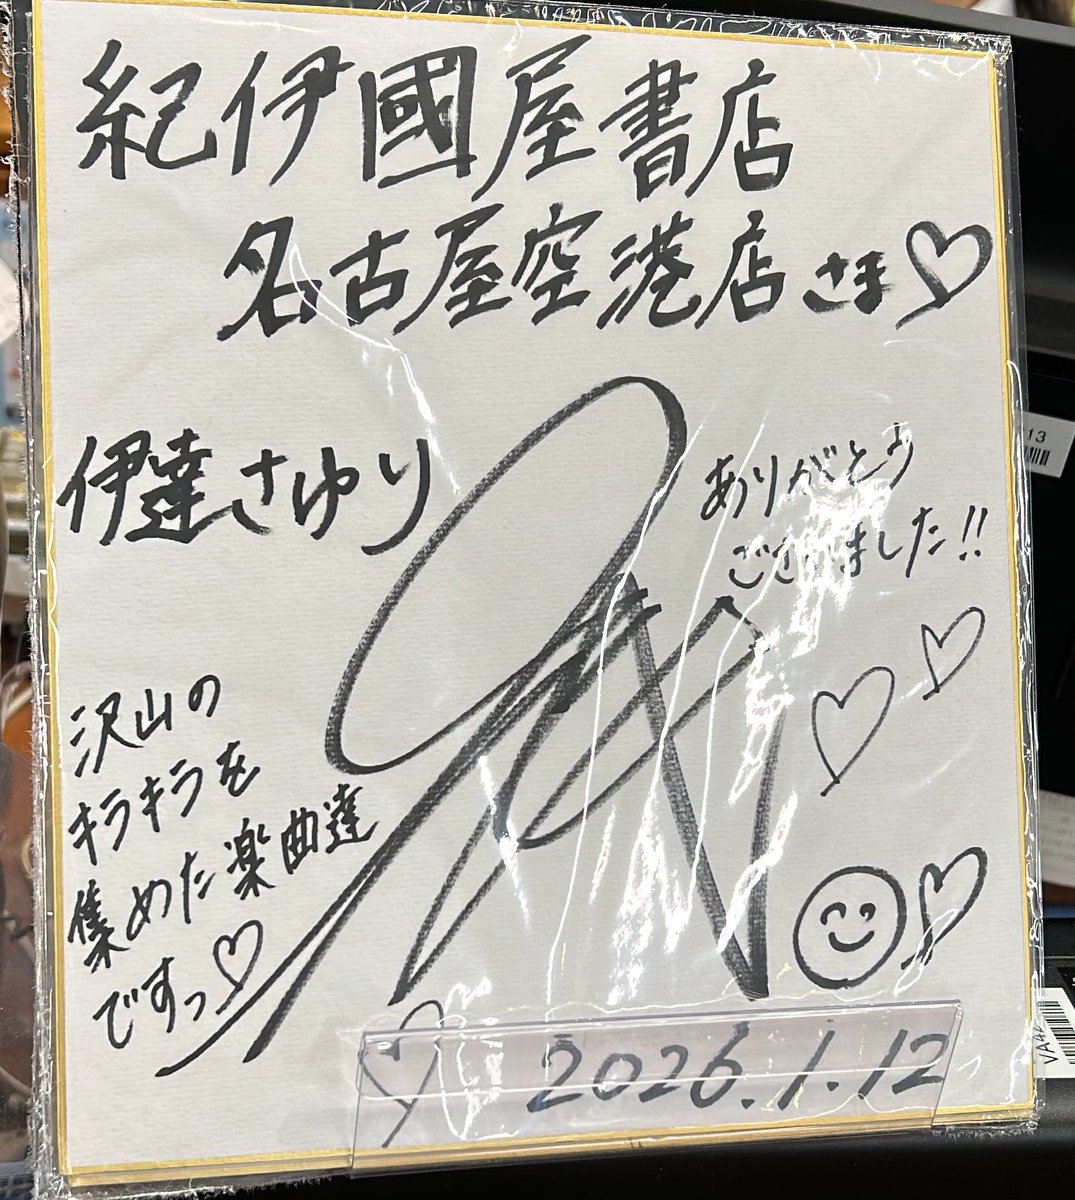 紀伊國屋書店
名古屋空港店さま♡
伊達さゆり
ありがとう
ございました!!
沢山の
キラキラを
集めた楽曲達
ですっ♡
2026.1.12
13
VA4